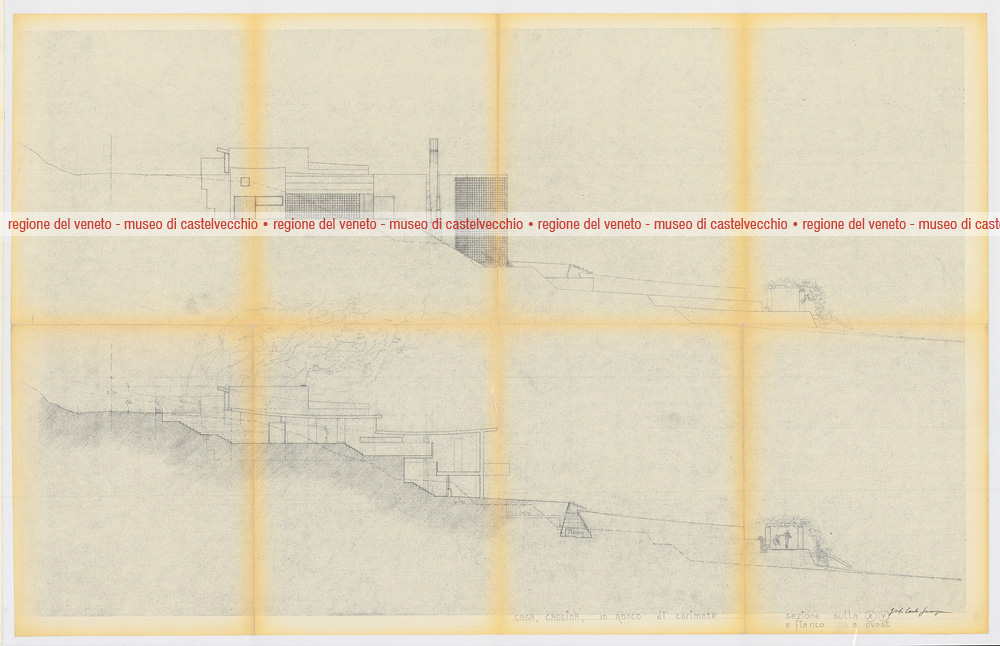 regione del veneto - museo di castelvecchio • regione del veneto - museo di castelvecchio • regione del veneto - museo di castelvecchio • regione del veneto - museo di cast
casa, cassina, in ronco di carimate
sezione sulla X Y
e fianco a ovest